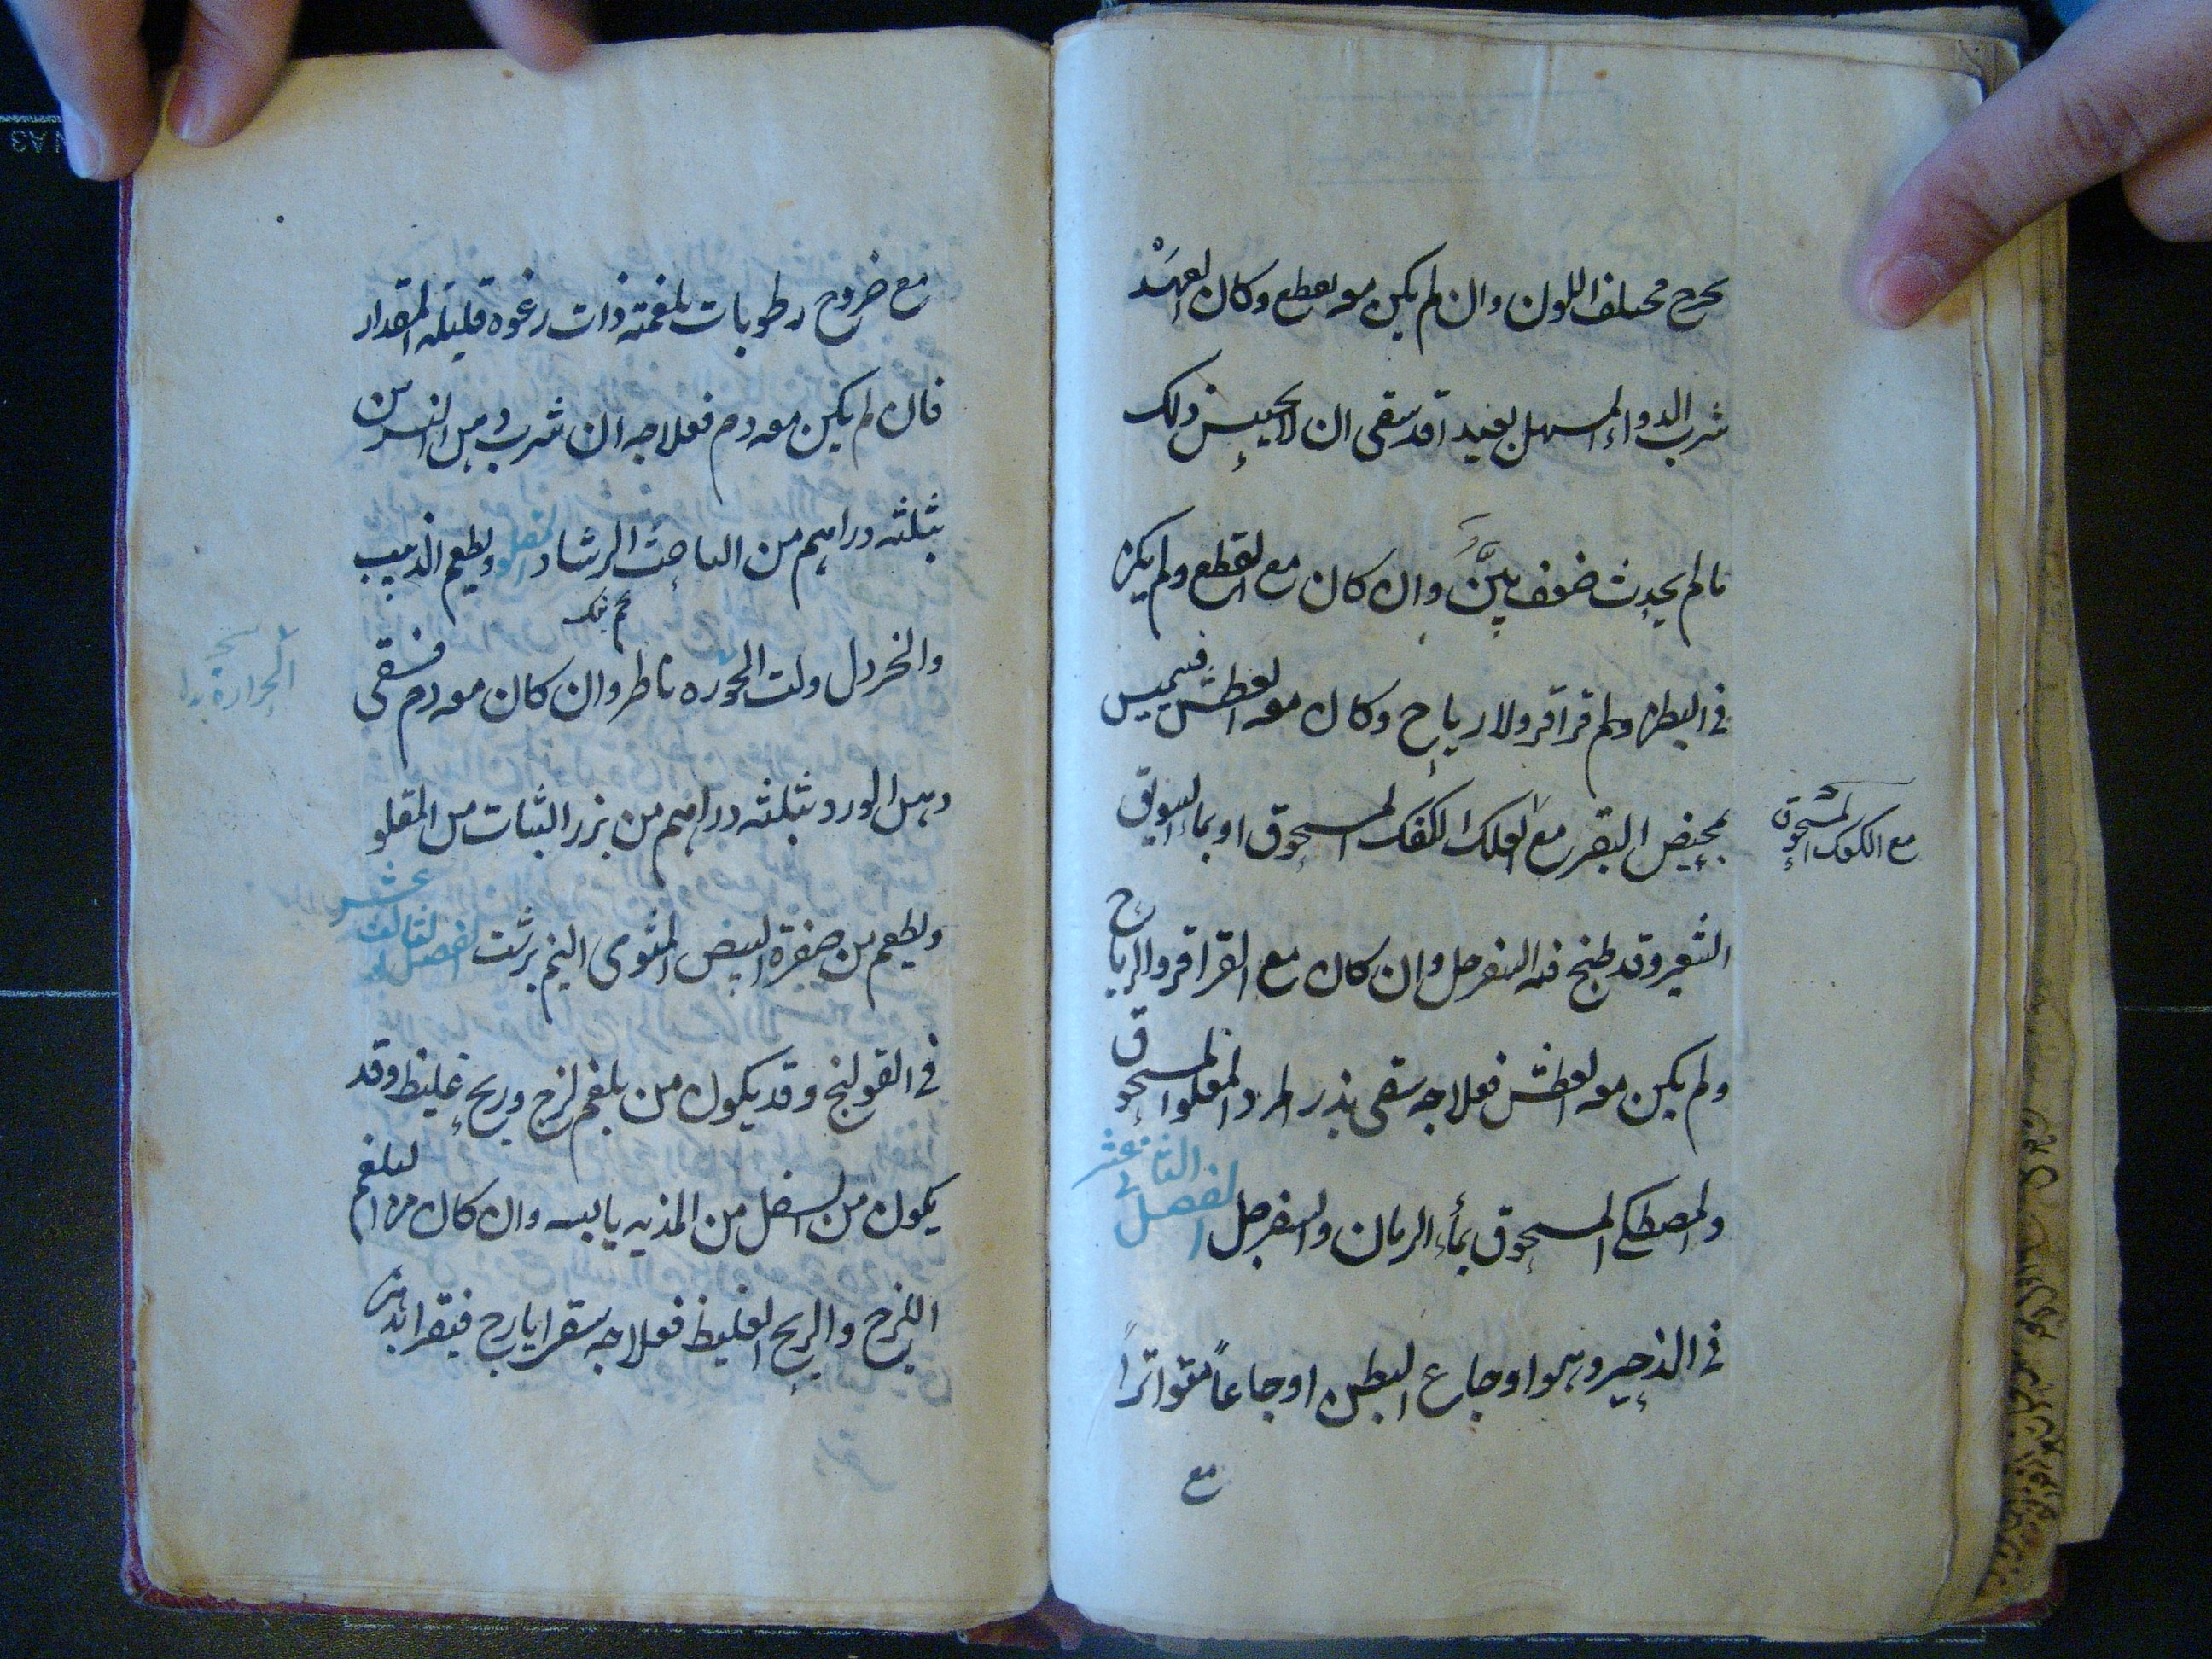 يخرج مختلف اللون وان لم يكن معه تقطع وكان العهد
شرب الدواء المسهل بعيد اقد سقى ان لا يحبس ذلك
ما لم يحدث ضعف بيّن وان كان مع التقطع ولم يكن
فى البطن ولم قراقر ولا رياح وكان معه العطش فيسمس
بمخيض البقر مع العلك الكعك المسحوق او بماء السويق
مع الكعك المسحوق
الشعير وقد طبخ فيه السفرجل وان كان مع القراقر والرياح
ولم يكن معه العطش فعلاجه سقى بذر المرو المقلوا المسحوق
والمصطكى المسحوق بماء الرمان والسفرجل الفصل الثانى عشر
فى الذحير وهو اوجاع البطن اوجاعاً متواتراً
مع
مع خروج رطوبات بلغمية ذات رغوه قليله المقدار
فان لم يكن معه دم فعلاجه ان شرب دهن النسرين
بثلثه دراهم من الرشاد ويطعم الذبيب
والخردل ولت الجوزه وان كان معه دم فسقى
الحرارة
دهن الورد بثلثه دراهم من بزر النبات من المقلو
ويطعم من صفرة البيض المشوى النيم برشت الفصل الثالث عشر
فى القولنج وقد يكون من بلغم لزج وريح غليظ وقد
يكون من المذيه يابسه وان كان من البلغم
اللزج والريح الغليظ فعلاجه سقر ايارج فيقرا بدهن